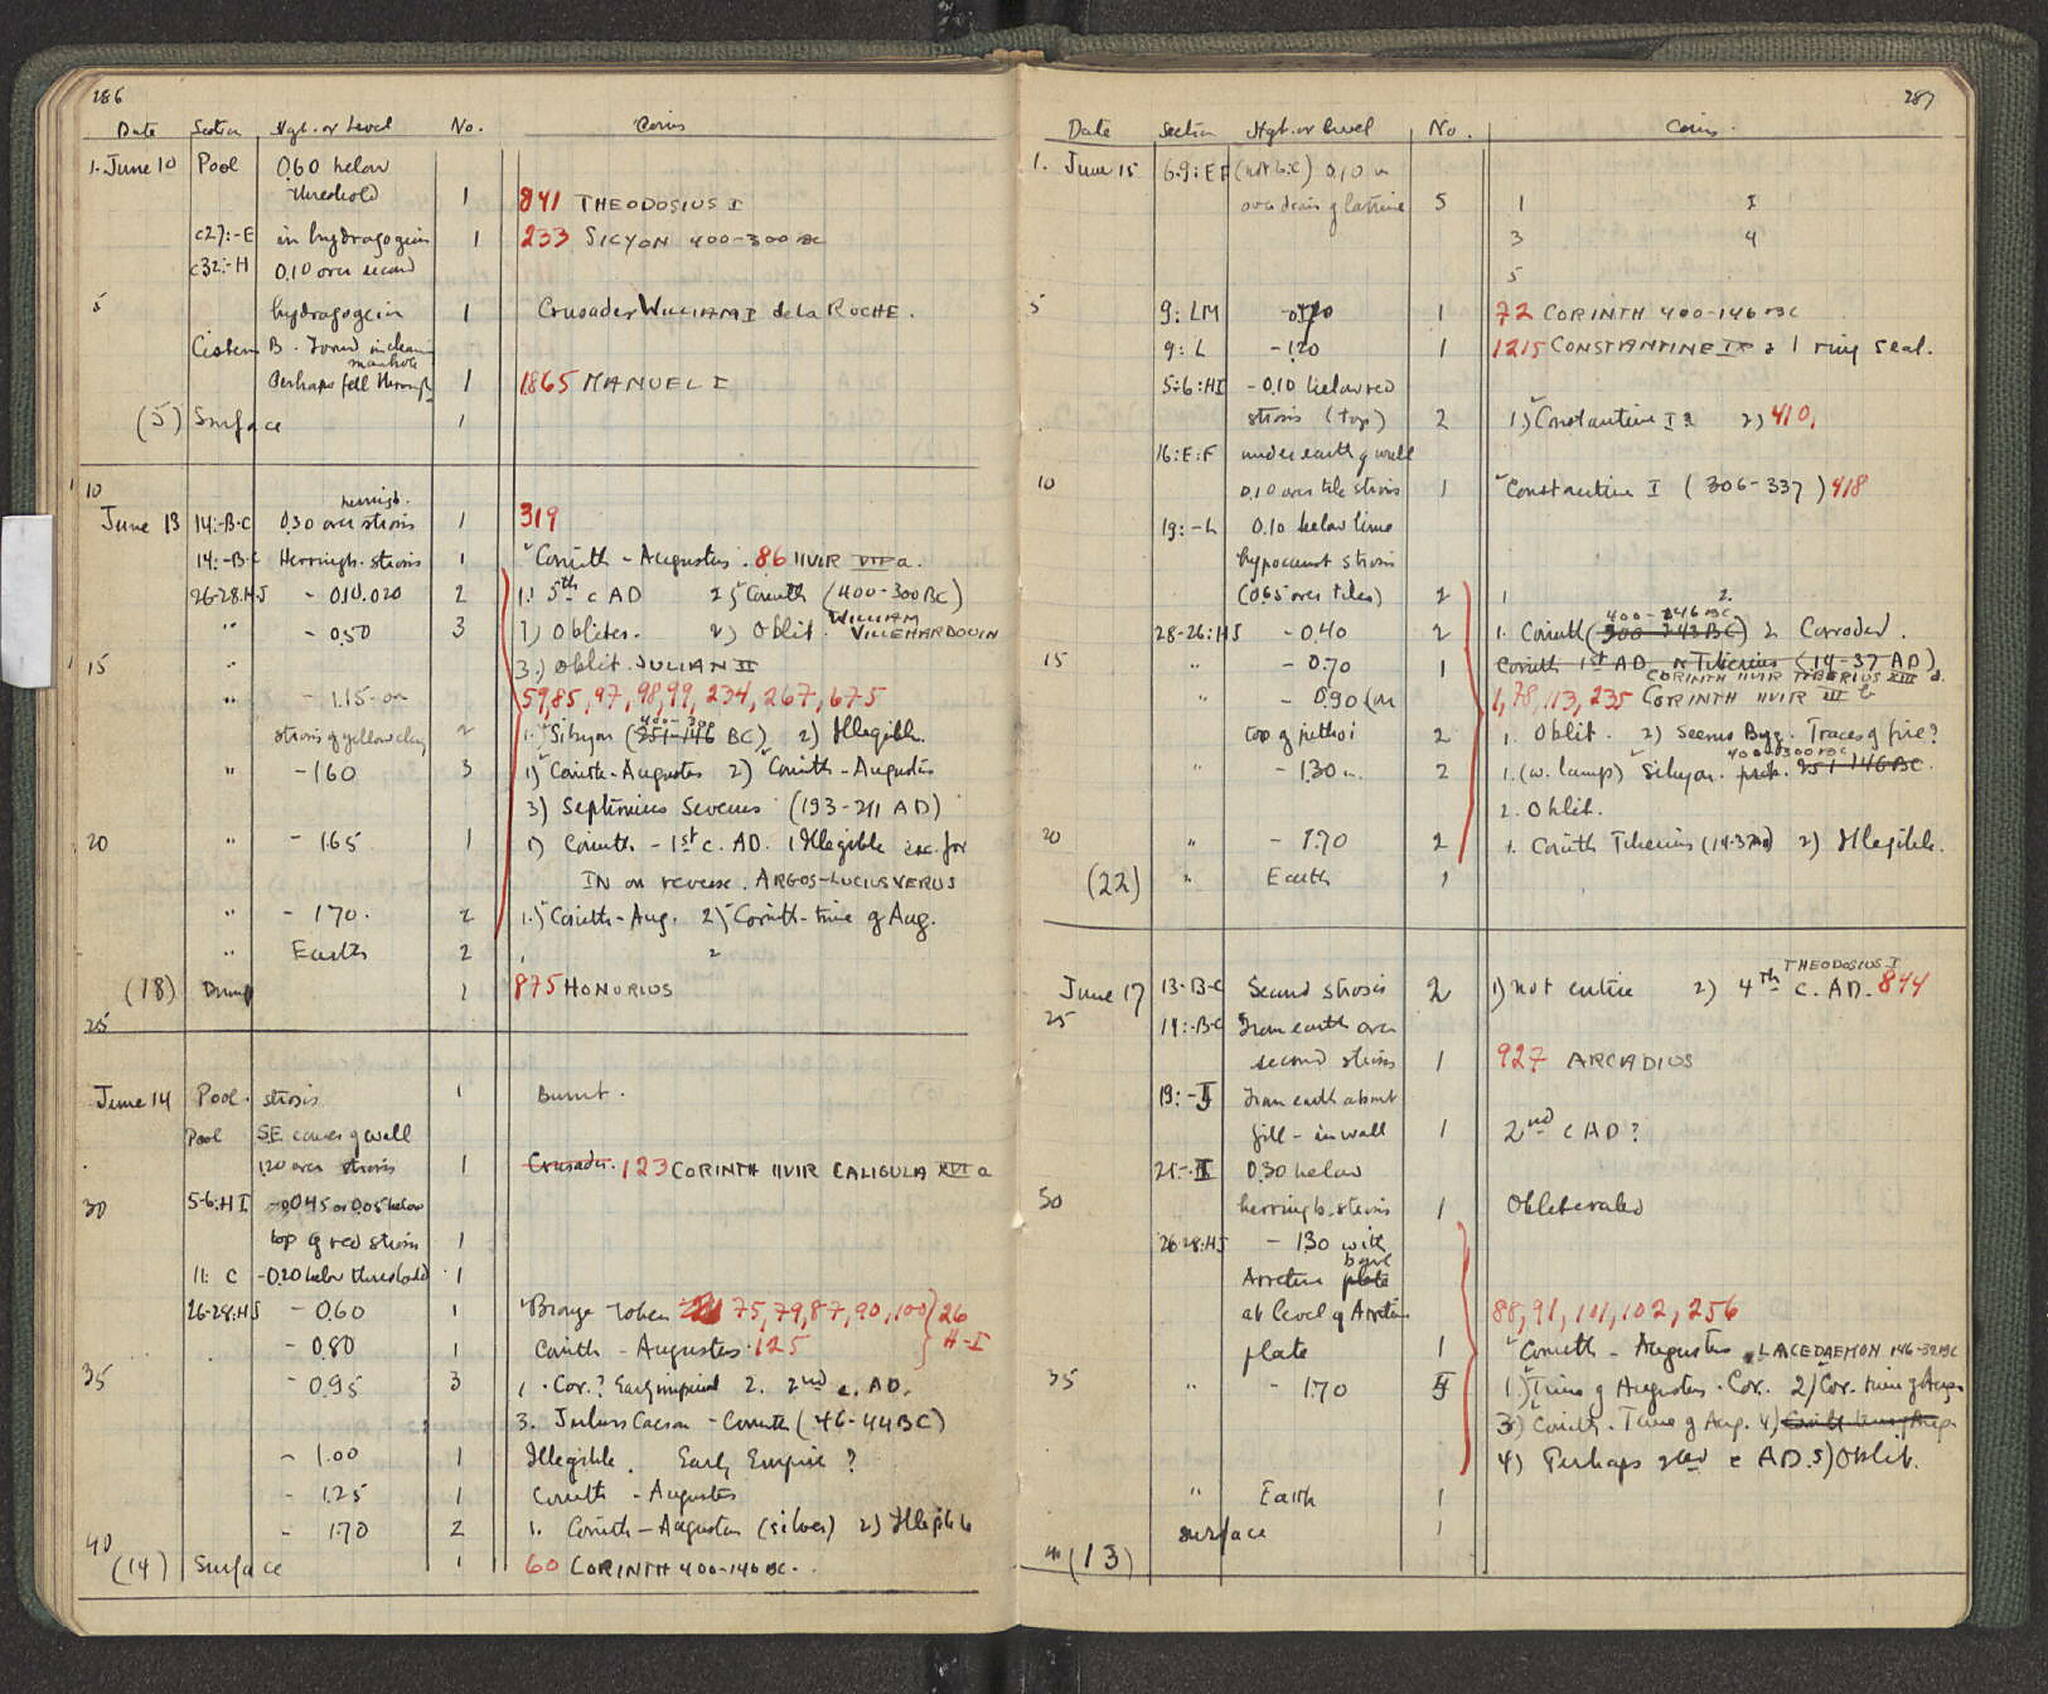 286
Date Section Hgt. or Level No. Coins
1. June 10 Pool 0.60 below
threshold 1 841 THEODOSIUS I
c27:-E in hydragogeion 1 233 SICYON 400-300 BC
c32:-H 0.10 over second
5 hydragogeion 1 Crusader WILLIAM I de la ROCHE.
Cistern B. Found in cleaning
manhole
Perhaps fell through 1 1865 MANUEL I
(5) Surface 1
10
herringb.
June 13 14:-B-C 0.30 over strosis 1 319
14:-B-C Herringb. strosis 1 Corinth - Augustus. 86 IIVIR VII a.
26-28:HJ - 0.10.020 2 1. 5th c AD 2) Corinth (400-300 BC)
" - 0.50 3 1) Obliter. 2) Oblit. WILLIAM VILLEHARDOUIN
15 " 3.) Oblit. JULIAN II
" - 1.15-on 59, 85, 97, 98, 99, 234, 267, 675
400-300
strosis of yellow clay 2 1. Sikyon (251-146 BC) 2) Illegible.
" - 1.60 3 1) Corinth-Augustus 2) Corinth-Augustus
3) Septimius Severus (193-211 AD)
20 " - 1.65 1 1) Corinth - 1st c. AD. Illegible exc. for
IN on reverse. ARGOS-LUCIUS VERUS
" - 1.70. 2 1.) Corinth-Aug. 2) Corinth-time of Aug.
" Earth 2 1 2
(18) Dump 1 875 HONORIUS
25
June 14 Pool. strosis 1 Burnt.
Pool S.E. corner of wall
1.20 over strosis 1 Crusader. 123 CORINTH IIVIR CALIGULA XVI a
30 5-6:HI -0.045 or 0.05 below
top of red strosis 1
11: C -0.20 below threshold 1
26-28:HJ - 0.60 1 Bronze token 75, 79, 87, 90, 100 } 26
- 0.80 1 Corinth - Augustus. 125 } H-I
35 - 0.95 3 1. Cor.? Early imperial 2. 2nd c. AD.
3. Julius Caesar - Corinth (46-44 BC)
- 1.00 1 Illegible. Early Empire?
- 1.25 1 Corinth - Augustus
- 1.70 2 1. Corinth - Augustus (silver) 2) Illegible
40
(14) Surface 1 60 CORINTH 400-146 BC.
287
Date Section Hgt. or level No. Coins.
1. June 15 6-9:EF (not b.c) 0.10 m
over drain of latrine 5 1 I
3 4
5
5 9: LM 1 72 CORINTH 400-146 BC
9: L -1.20 1 1215 CONSTANTINE IX & 1 ring seal.
5-6:HI -0.10 below red
strosis (top) 2 1.) Constantine I 2) 410.
16:E:F under earth of wall
10 0.10 over tile strosis 1 Constantine I (306-337) 418
19:-L 0.10 below lime
hypocaust strosis
(0.65 over tiles) 2 1 2.
400-146 BC
28-26:HJ - 0.40 2 1. Corinth (300-243 BC) 2. Corroded.
15 " - 0.70 1 Corinth 1st AD or Tiberius (14-37 AD)
CORINTH IIVIR TIBERIUS XIII d.
" - 0.90 (on 1, 78, 113, 235 CORINTH IIVIR III b
top of pithoi 2 1. Oblit. 2) Seems Byz. Traces of fire?
400-300 BC
" - 1.30 m. 2 1. (w. lamp) Sikyon. prob. 251-146 BC.
2. Oblit.
20 " - 1.70 2 1. Corinth Tiberius (14-37 AD) 2) Illegible.
(22) " Earth 1
THEODOSIUS I
June 17 13-B-C Second strosis 2 1) not entire 2) 4th c. AD. 844
25 14:-B-C From earth over
second strosis 1 927 ARCADIUS
19:-J From earth about
fill-in wall 1 2nd c AD?
0.30 below
30 herringb. strosis 1 Obliterated
26-28:HJ - 1.30 with
bowl
Arretine plate
at level of Arretine 88, 91, 101, 102, 256
plate 1 Corinth - Augustus. LACEDAEMON 146-32 BC
35 " - 1.70 5 1.) Time of Augustus. Cor. 2) Cor. time of Aug.
3) Corinth. Time of Aug. 4) Corinth time of Aug.
4) Perhaps 2nd c AD. 5) Oblit.
" Earth 1
surface 1
40 (13)